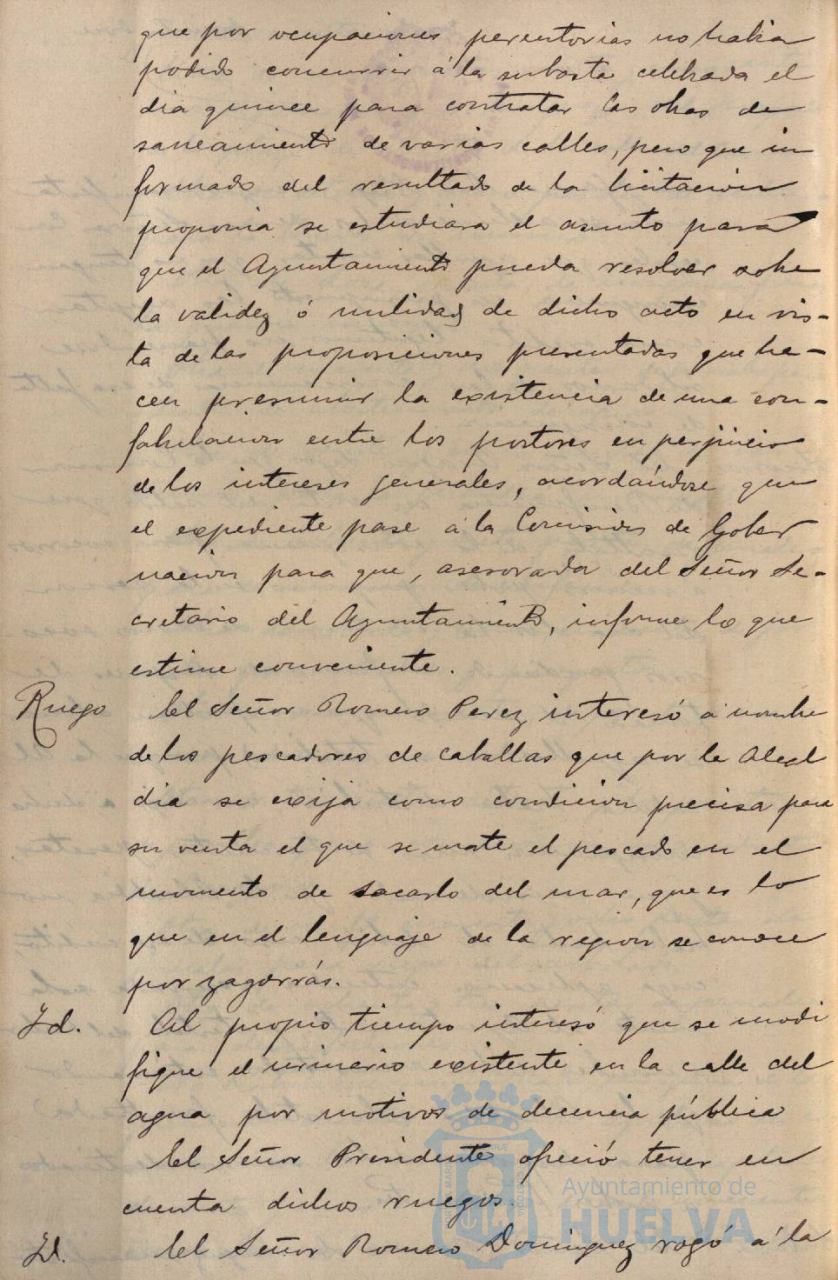 que por ocupaciones perentorias no habia
podido concurrir á la subasta celebrada el
dia quince para contratar las obras de
saneamiento de varias calles, pero que in
formado del resultado de la licitacion
proponia se estudiara el asunto para
que el Ayuntamiento pueda resolver sobre
la validez ó nulidad de dicho acto en vis-
ta de las proposiciones presentadas que ha-
cen presumir la existencia de una con-
fabulacion entre los postores en perjuicio
de los intereses generales, acordándose que
el expediente pase á la Comision de Gober
nacion para que, asesorada del Señor Se-
cretario del Ayuntamiento, informe lo que
estime conveniente.
Ruego El Señor Romero Perez interesó a nombre
de los pescadores de caballas que por la Alcal
dia se exija como condicion precisa para
su venta el que se mate el pescado en el
momento de sacarlo del mar, que es lo
que en el lenguaje de la region se conoce
por zagarrás.
Id. Al propio tiempo interesó que se modi
fique el urinario existente en la calle del
agua por motivos de decencia pública
El Señor Presidente ofreció tener en
cuenta dichos ruegos.
Id. El Señor Romero Dominguez rogó á la
Ayuntamiento de
HUELVA